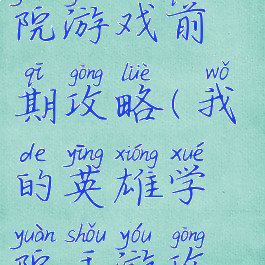 院游戏前
qī gōng lüè wǒ
期攻略(我
de yīng xióng xué
的英雄学
yuàn shǒu yóu gōng
院手游攻